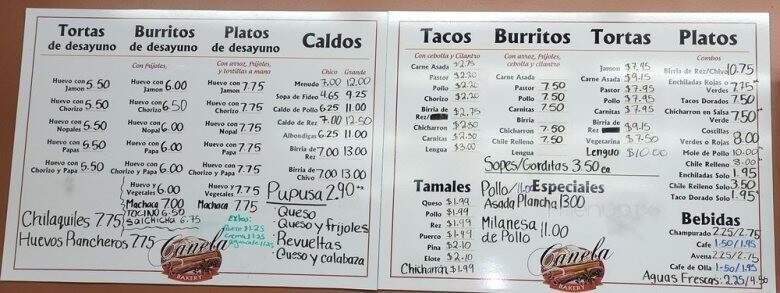 Tortas
de desayuno
Huevo con Jamon 5.50
Huevo con Chorizo 5.50
Huevo con Nopales 5.50
Huevo con Papa 5.50
Huevo con Chorizo y Papa 5.50
Chilaquiles 7.75
Huevos Rancheros 7.75
Burritos
de desayuno
Con Frijoles,
Huevo con Jamon 6.00
Huevo con Chorizo 6.50
Huevo con Nopal 6.00
Huevo con Papa 6.00
Huevo con Chorizo y Papa 6.50
Huevo y Vegetales 6.00
Machaca 7.00
TOCINO 6.50
Salchicha 6.75
Platos
de desayuno
Con arroz, Frijoles,
y tortillas a mano
Huevo con Jamon 7.75
Huevo con Chorizo 7.75
Huevo con Nopal 7.75
Huevo con Papa 7.75
Huevo con Chorizo y Papa 7.75
Huevo y Vegetales 7.75
Machaca 7.75
Extras:
Caldos
Chico Grande
Menudo 7.00 12.00
Sopa de Fideo 4.65 9.25
Caldo de Pollo 6.25 11.00
Caldo de Rez 7.00 12.50
Albondigas 6.25 11.00
Birria de Rez 7.00 13.00
Birria de Chivo 7.00 13.00
Pupusa 2.90
Queso
Queso y frijoles
Revueltas
Queso y calabaza
Canela
BAKERY
Tacos
Con cebolla y Cilantro
Carne Asada $2.75
Pastor $2.20
Pollo $2.20
Chorizo $2.20
Birria de Rez/ $2.75
Chicharron $2.50
Carnitas $2.50
Lengua $3.00
Burritos
Con arroz, Frijoles,
cebolla y cilantro
Carne Asada
Pastor 7.50
Pollo 7.50
Carnitas 7.50
Birria
Chicharron 7.50
Chile Relleno 7.50
Lengua
Sopes/Gorditas 3.50 ea
Tortas
Jamon $7.95
Carne Asada $9.15
Pastor $7.95
Pollo $7.95
Carnitas $7.95
Birria de Rez $9.15
Vegetariana $7.50
Lengua $10.00
Platos
Combos
Birria de Rez/Chivo 10.75
Enchiladas Rojas o Verdes 7.75
Tacos Dorados 7.50
Chicharron en Salsa Verde 7.50
Costillas Verdes o Rojas 8.00
Mole de Pollo 10.00
Chile Relleno 8.00
Enchiladas Solo 1.95
Chile Relleno Solo 3.50
Taco Dorado Solo 1.95
Tamales
Queso $1.99
Pollo $1.99
Rez $1.99
Puerco $1.99
Pina $2.10
Elote $2.10
Chicharrón $1.99
Especiales
Pollo/
Asada Plancha 13.00
Milanesa de Pollo 11.00
Canela
BAKERY
Bebidas
Champurado 2.25/2.75
Cafe 1.50/1.95
Avena 2.25/2.75
Cafe de Olla 1.50/1.95
Aguas Frescas: 2.25/4.50